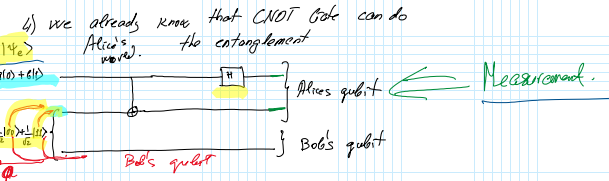 4) we already know that CNOT Gate can do
Alice's the entanglement
|Ψe>
α|0> + β|1>
H
} Alice's qubit
Measurement.
1/√2|00>+1/√2|11>
} Bob's qubit
Bob's qubit